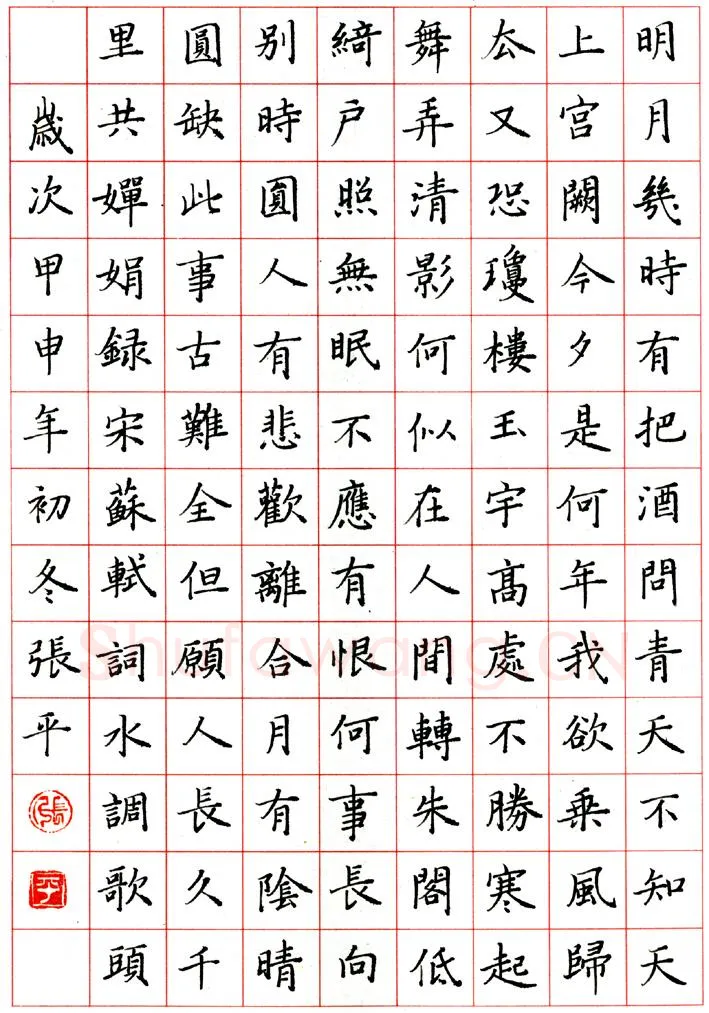 明月幾時有把酒問青天不知天
上宮闕今夕是何年我欲乗風歸
厺又恐瓊樓玉宇髙處不勝寒起
舞弄清影何似在人間轉朱閣低
綺户照無眠不應有恨何事長向
别時圓人有悲歡離合月有陰晴
圓缺此事古難全但願人長久千
里共嬋娟録宋蘇軾詞水調歌頭
歲次甲申年初冬張平
張
平
Shufawang.CN